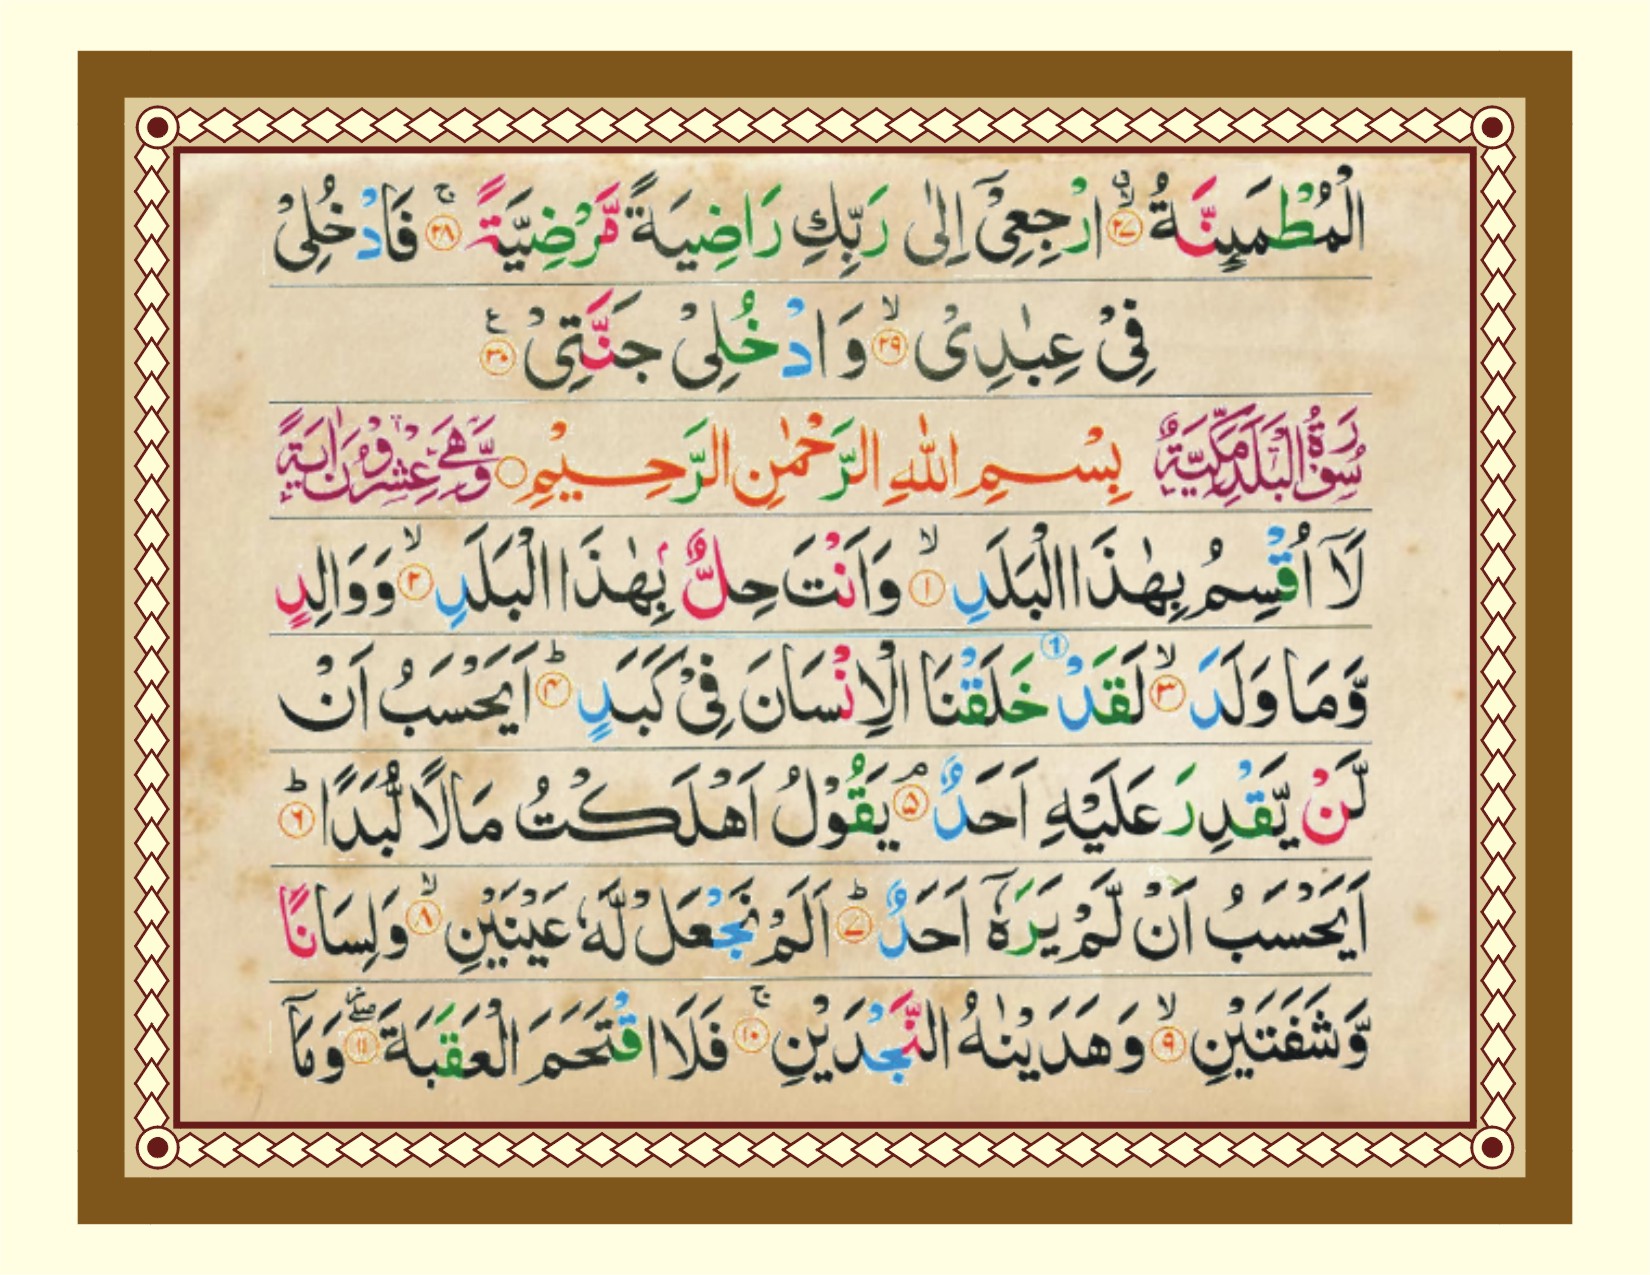 الْمُطْمَىِٕنَّةُ ﴿۲۷﴾ ارْجِعِیْۤ اِلٰى رَبِّكِ رَاضِیَةً مَّرْضِیَّةً ﴿۲۸﴾ فَادْخُلِیْ
فِیْ عِبٰدِیْ ﴿۲۹﴾ وَ ادْخُلِیْ جَنَّتِیْ ﴿۳۰﴾
سُوْرَةُ الْبَلَدِ مَكِّیَّةٌ بِسْمِ اللّٰهِ الرَّحْمٰنِ الرَّحِیْمِ وَّهِیَ عِشْرُوْنَ اٰیَةً
لَاۤ اُقْسِمُ بِهٰذَا الْبَلَدِ ﴿۱﴾ وَاَنْتَ حِلٌّۢ بِهٰذَا الْبَلَدِ ﴿۲﴾ وَوَالِدٍ
وَّمَا وَلَدَ ﴿۳﴾ لَقَدْ ① خَلَقْنَا الْاِنْسَانَ فِیْ كَبَدٍ ﴿۴﴾ اَیَحْسَبُ اَنْ
لَّنْ یَّقْدِرَ عَلَیْهِ اَحَدٌ ﴿۵﴾ یَقُوْلُ اَهْلَكْتُ مَالًا لُّبَدًا ﴿۶﴾
اَیَحْسَبُ اَنْ لَّمْ یَرَهٗۤ اَحَدٌ ﴿۷﴾ اَلَمْ نَجْعَلْ لَّهٗ عَیْنَیْنِ ﴿۸﴾ وَلِسَانًا
وَّشَفَتَیْنِ ﴿۹﴾ وَهَدَیْنٰهُ النَّجْدَیْنِ ﴿۱۰﴾ فَلَا اقْتَحَمَ الْعَقَبَةَ ﴿۱۱﴾ وَمَاۤ